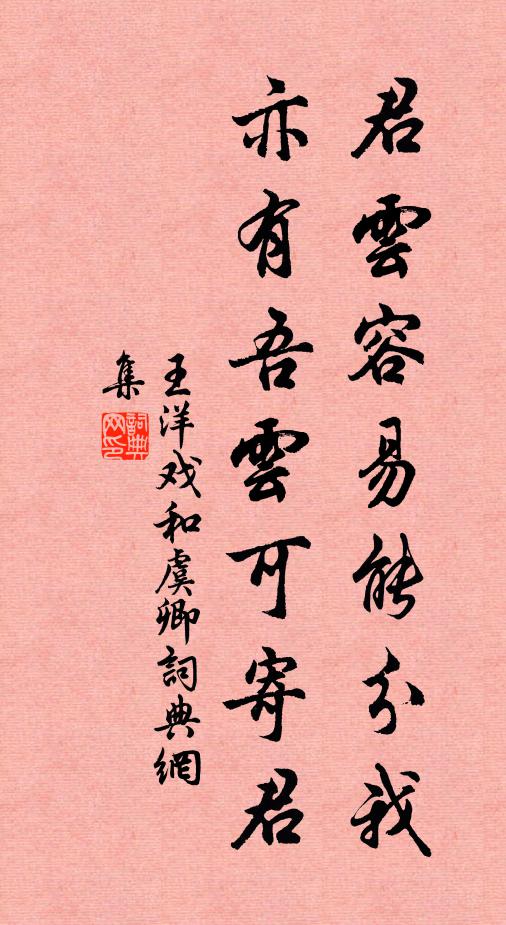 君雲容易能分我
亦有吾雲可寄君
王洋戏和虞卿詞典網
集
詞典
网印